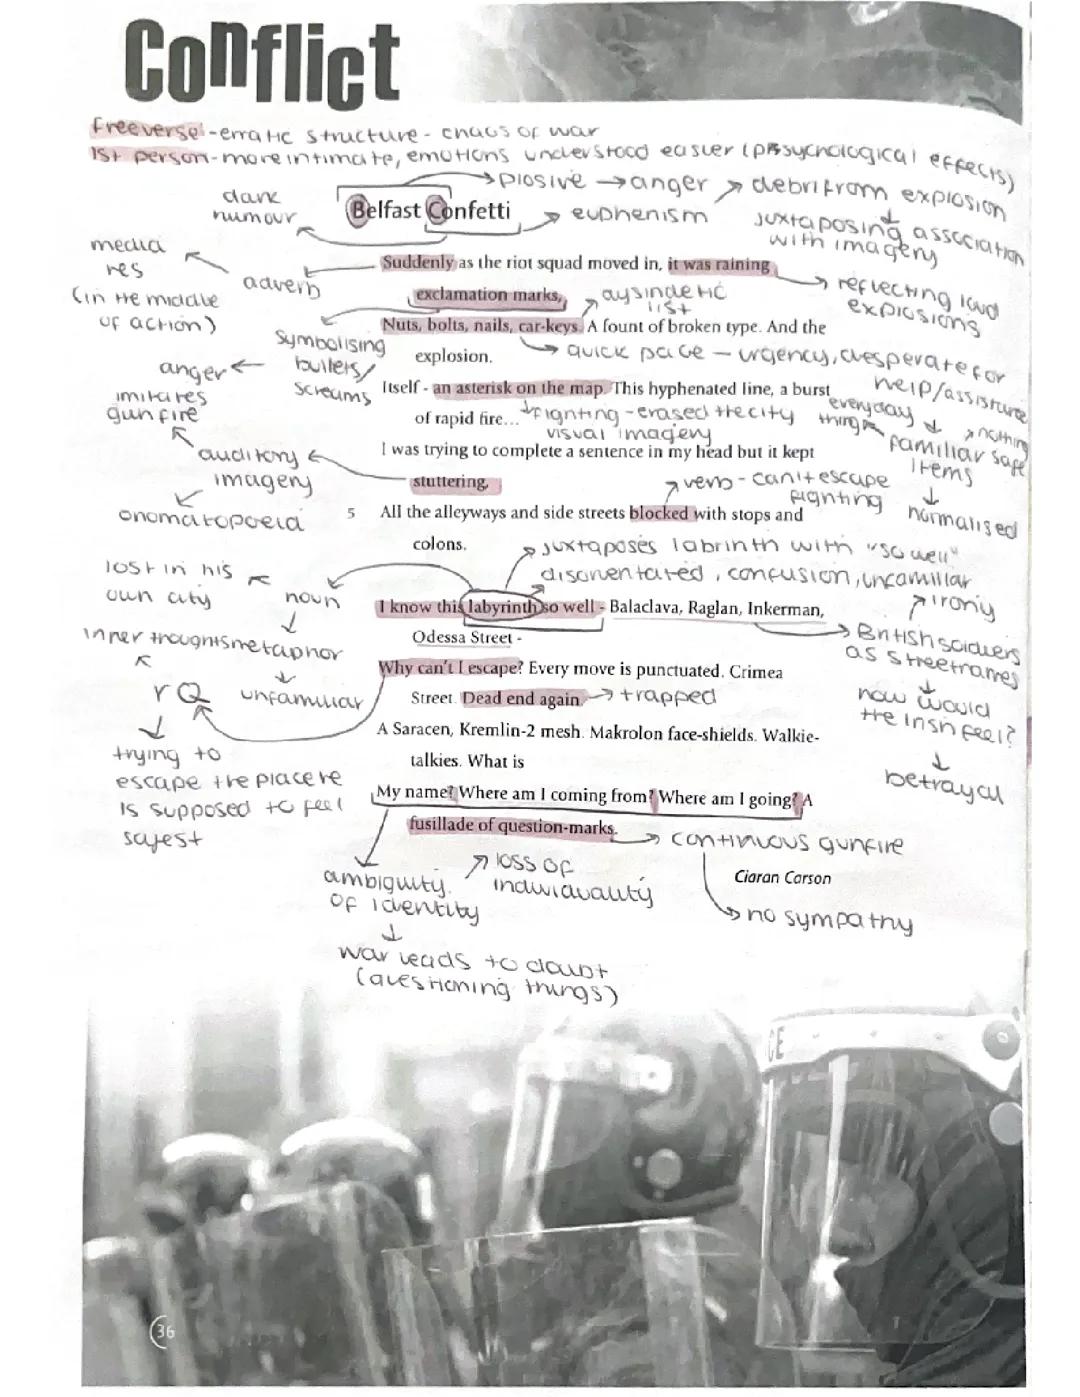 Conflict
Free verse - erratic structure - chaos of war
1st person - more intimate, emotions understood easier (psychological effects)
plosive → anger
debri from explosion
dark
humour
Belfast Confetti
euphenism
juxtaposing association
with imagery
media
res
(in the middle
of action)
adverb
Suddenly as the riot squad moved in, it was raining
exclamation marks,
aysindetic
list
reflecting loud
explosions
Nuts, bolts, nails, car-keys. A fount of broken type. And the
explosion.
symbolising
bullets/
screams
anger
imitates
gunfire
quick pace - urgency, desperate for
help/assistance
Itself - an asterisk on the map. This hyphenated line, a burst
of rapid fire...
fighting - erased the city
visual imagery
everyday
things
familiar safe
items
nothing
normalised
I was trying to complete a sentence in my head but it kept
stuttering,
auditory
imagery
onomatopoeia
verb - can't escape
fighting
5 All the alleyways and side streets blocked with stops and
colons.
juxtaposes labrinth with "so well"
disorientated, confusion, unfamiliar
irony
lost in his
own city
noun
metaphor
unfamiliar
I know this labyrinth so well - Balaclava, Raglan, Inkerman,
Odessa Street -
British soldiers
as streetnames
how would
the Irish feel?
betrayal
inner thoughts
rQ
trying to
escape the place he
is supposed to feel
safest
Why can't I escape? Every move is punctuated. Crimea
Street. Dead end again.
trapped
A Saracen, Kremlin-2 mesh. Makrolon face-shields. Walkie-
talkies. What is
My name? Where am I coming from? Where am I going? A
fusillade of question-marks.
continuous gunfire
no sympathy
Ciaran Carson
ambiguity
of identity
loss of
individuality
war leads to doubt
(questioning things)
CE
36